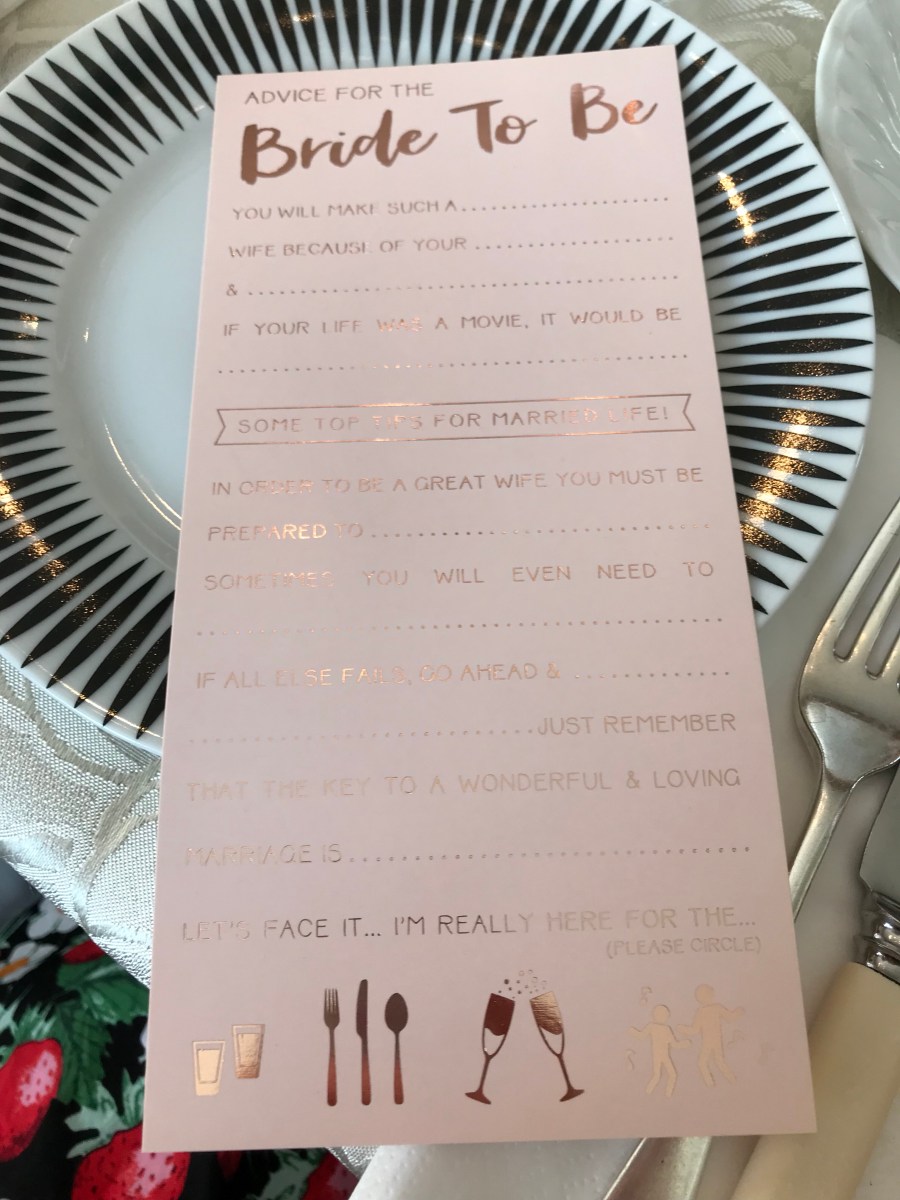 ADVICE FOR THE
Bride To Be
YOU WILL MAKE SUCH A....................
WIFE BECAUSE OF YOUR ...................
& .......................................
IF YOUR LIFE WAS A MOVIE, IT WOULD BE
.............................................
SOME TOP TIPS FOR MARRIED LIFE!
IN ORDER TO BE A GREAT WIFE YOU MUST BE
PREPARED TO ...............................
SOMETIMES YOU WILL EVEN NEED TO
.............................................
IF ALL ELSE FAILS, GO AHEAD & .............
.............................JUST REMEMBER
THAT THE KEY TO A WONDERFUL & LOVING
MARRIAGE IS .................................
LET'S FACE IT... I'M REALLY HERE FOR THE...
(PLEASE CIRCLE)